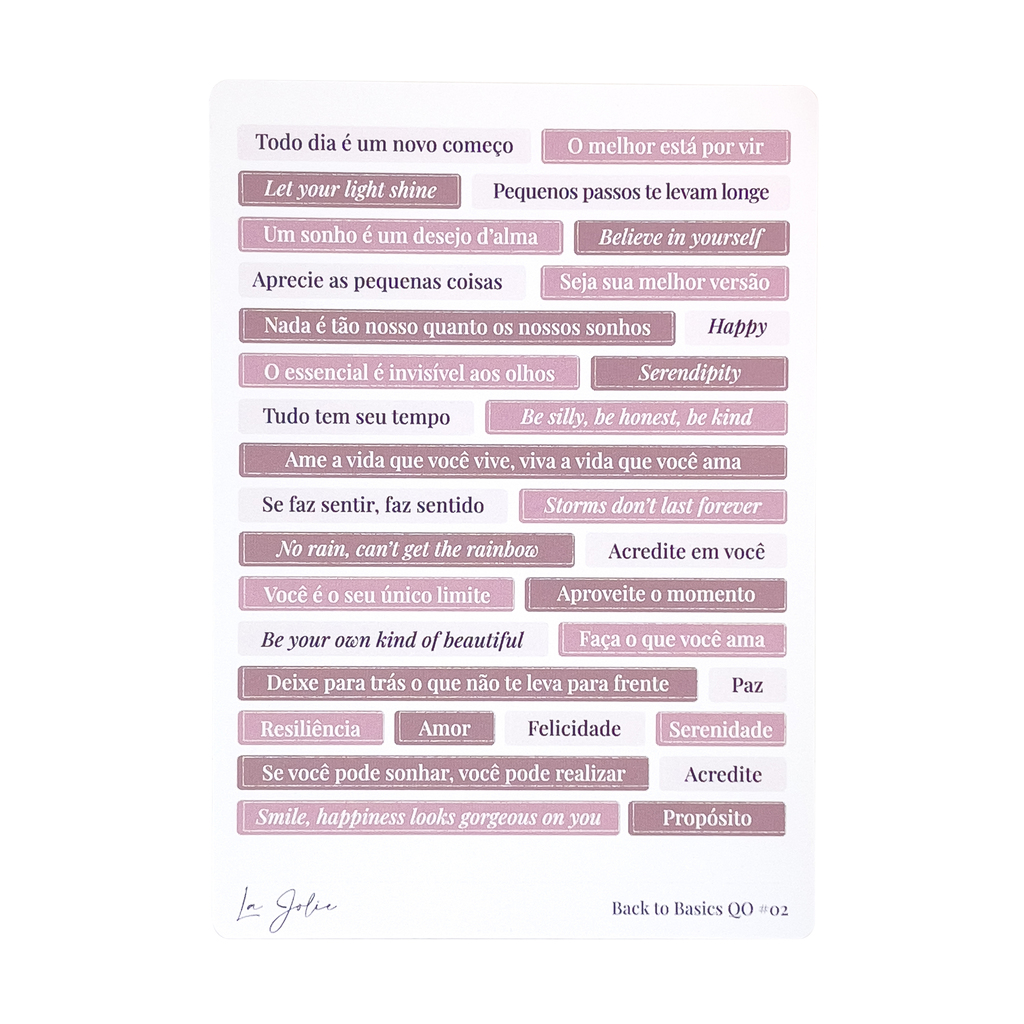 Todo dia é um novo começo O melhor está por vir
Let your light shine Pequenos passos te levam longe
Um sonho é um desejo d'alma Believe in yourself
Aprecie as pequenas coisas Seja sua melhor versão
Nada é tão nosso quanto os nossos sonhos Happy
O essencial é invisível aos olhos Serendipity
Tudo tem seu tempo Be silly, be honest, be kind
Ame a vida que você vive, viva a vida que você ama
Se faz sentir, faz sentido Storms don't last forever
No rain, can't get the rainbow Acredite em você
Você é o seu único limite Aproveite o momento
Be your own kind of beautiful Faça o que você ama
Deixe para trás o que não te leva para frente Paz
Resiliência Amor Felicidade Serenidade
Se você pode sonhar, você pode realizar Acredite
Smile, happiness looks gorgeous on you Propósito
La Jolie Back to Basics QO #02